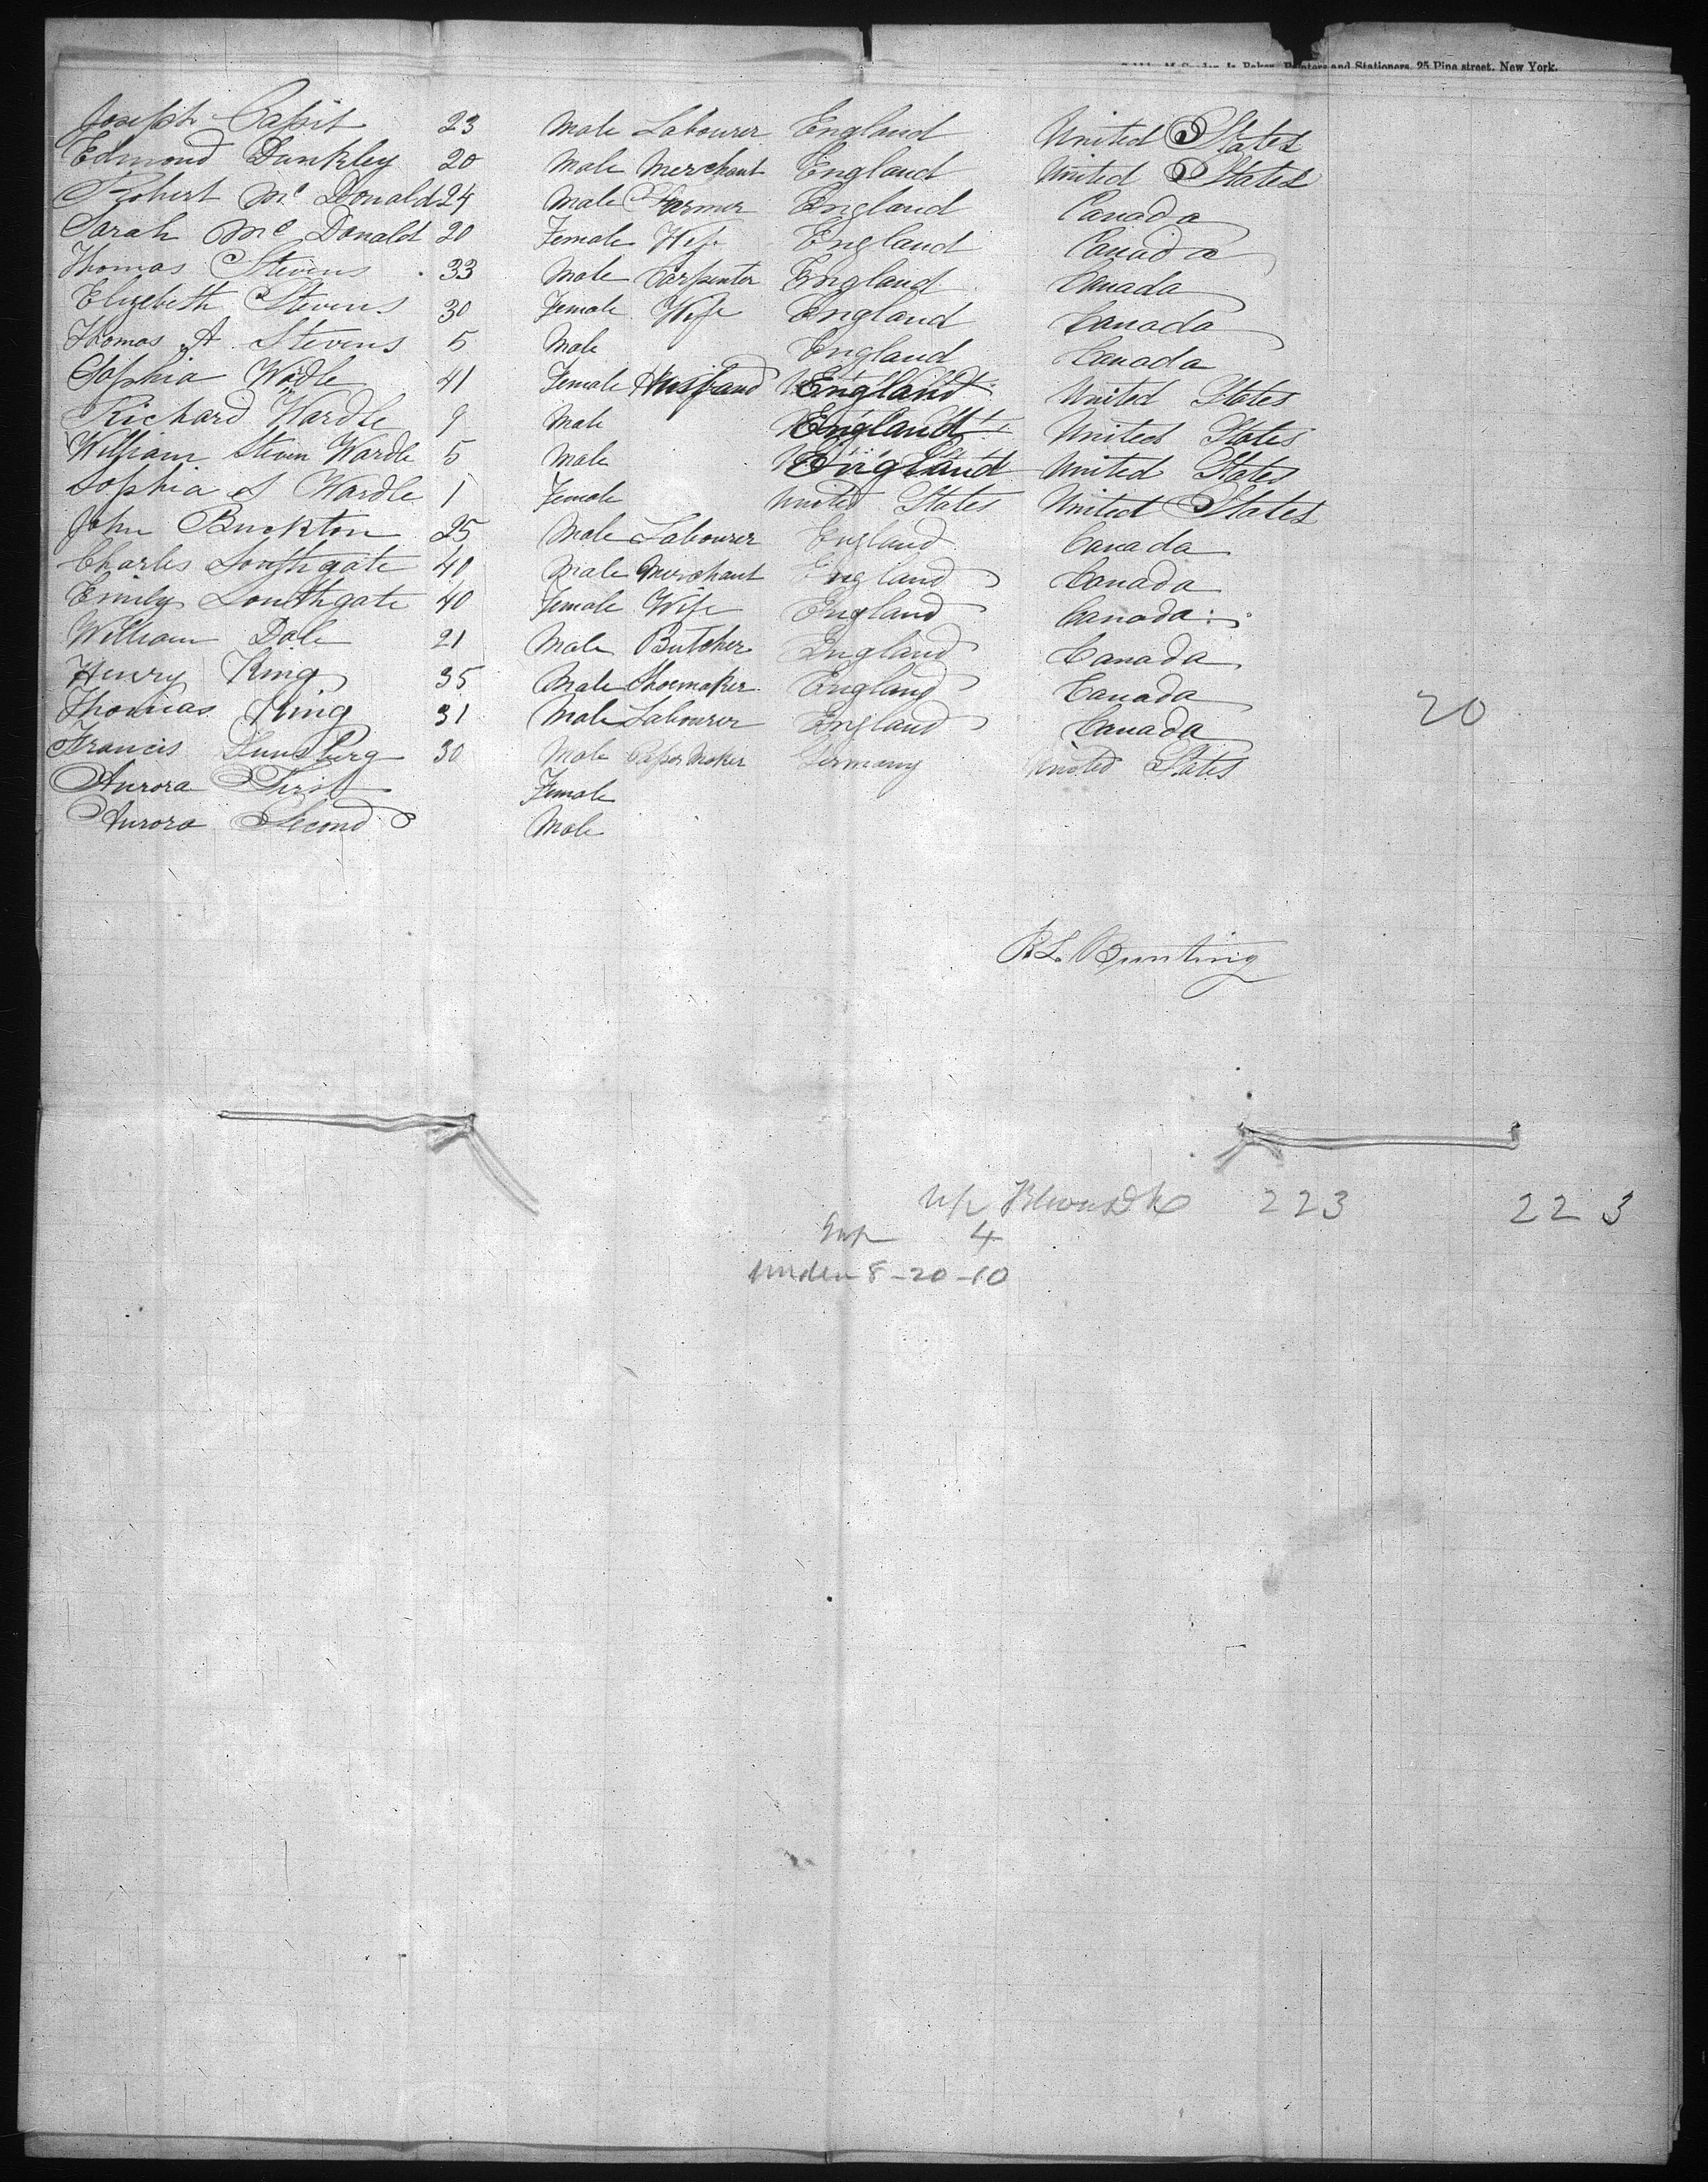 Painters and Stationers, 25 Pine street, New York.
Joseph Capit 23 Male Labourer England United States
Edmond Dunkley 20 Male Merchant England United States
Robert Mc Donald 24 Male Farmer England Canada
Sarah Mc Donald 20 Female Wife England Canada
Thomas Stevens 33 Male Carpenter England Canada
Elizebeth Stevens 30 Female Wife England Canada
Thomas A Stevens 5 Male England Canada
Sophia Wadle 41 Female Husband England United States
Richard Wardle 9 Male England United States
William Steven Wardle 5 Male England United States
Sophia S Wardle 1 Female United States United States
John Buckton 25 Male Labourer England Canada
Charles Southgate 40 Male Merchant England Canada
Emily Southgate 40 Female Wife England Canada
William Dale 21 Male Butcher England Canada
Henry King 35 Male Shoemaker England Canada
Thomas King 31 Male Labourer England Canada 20
Francis 30 Male Paper Maker Germany United States
Aurora First Female
Aurora Second Male
R.L. Bunting
223 223
4
Under 8-20-10